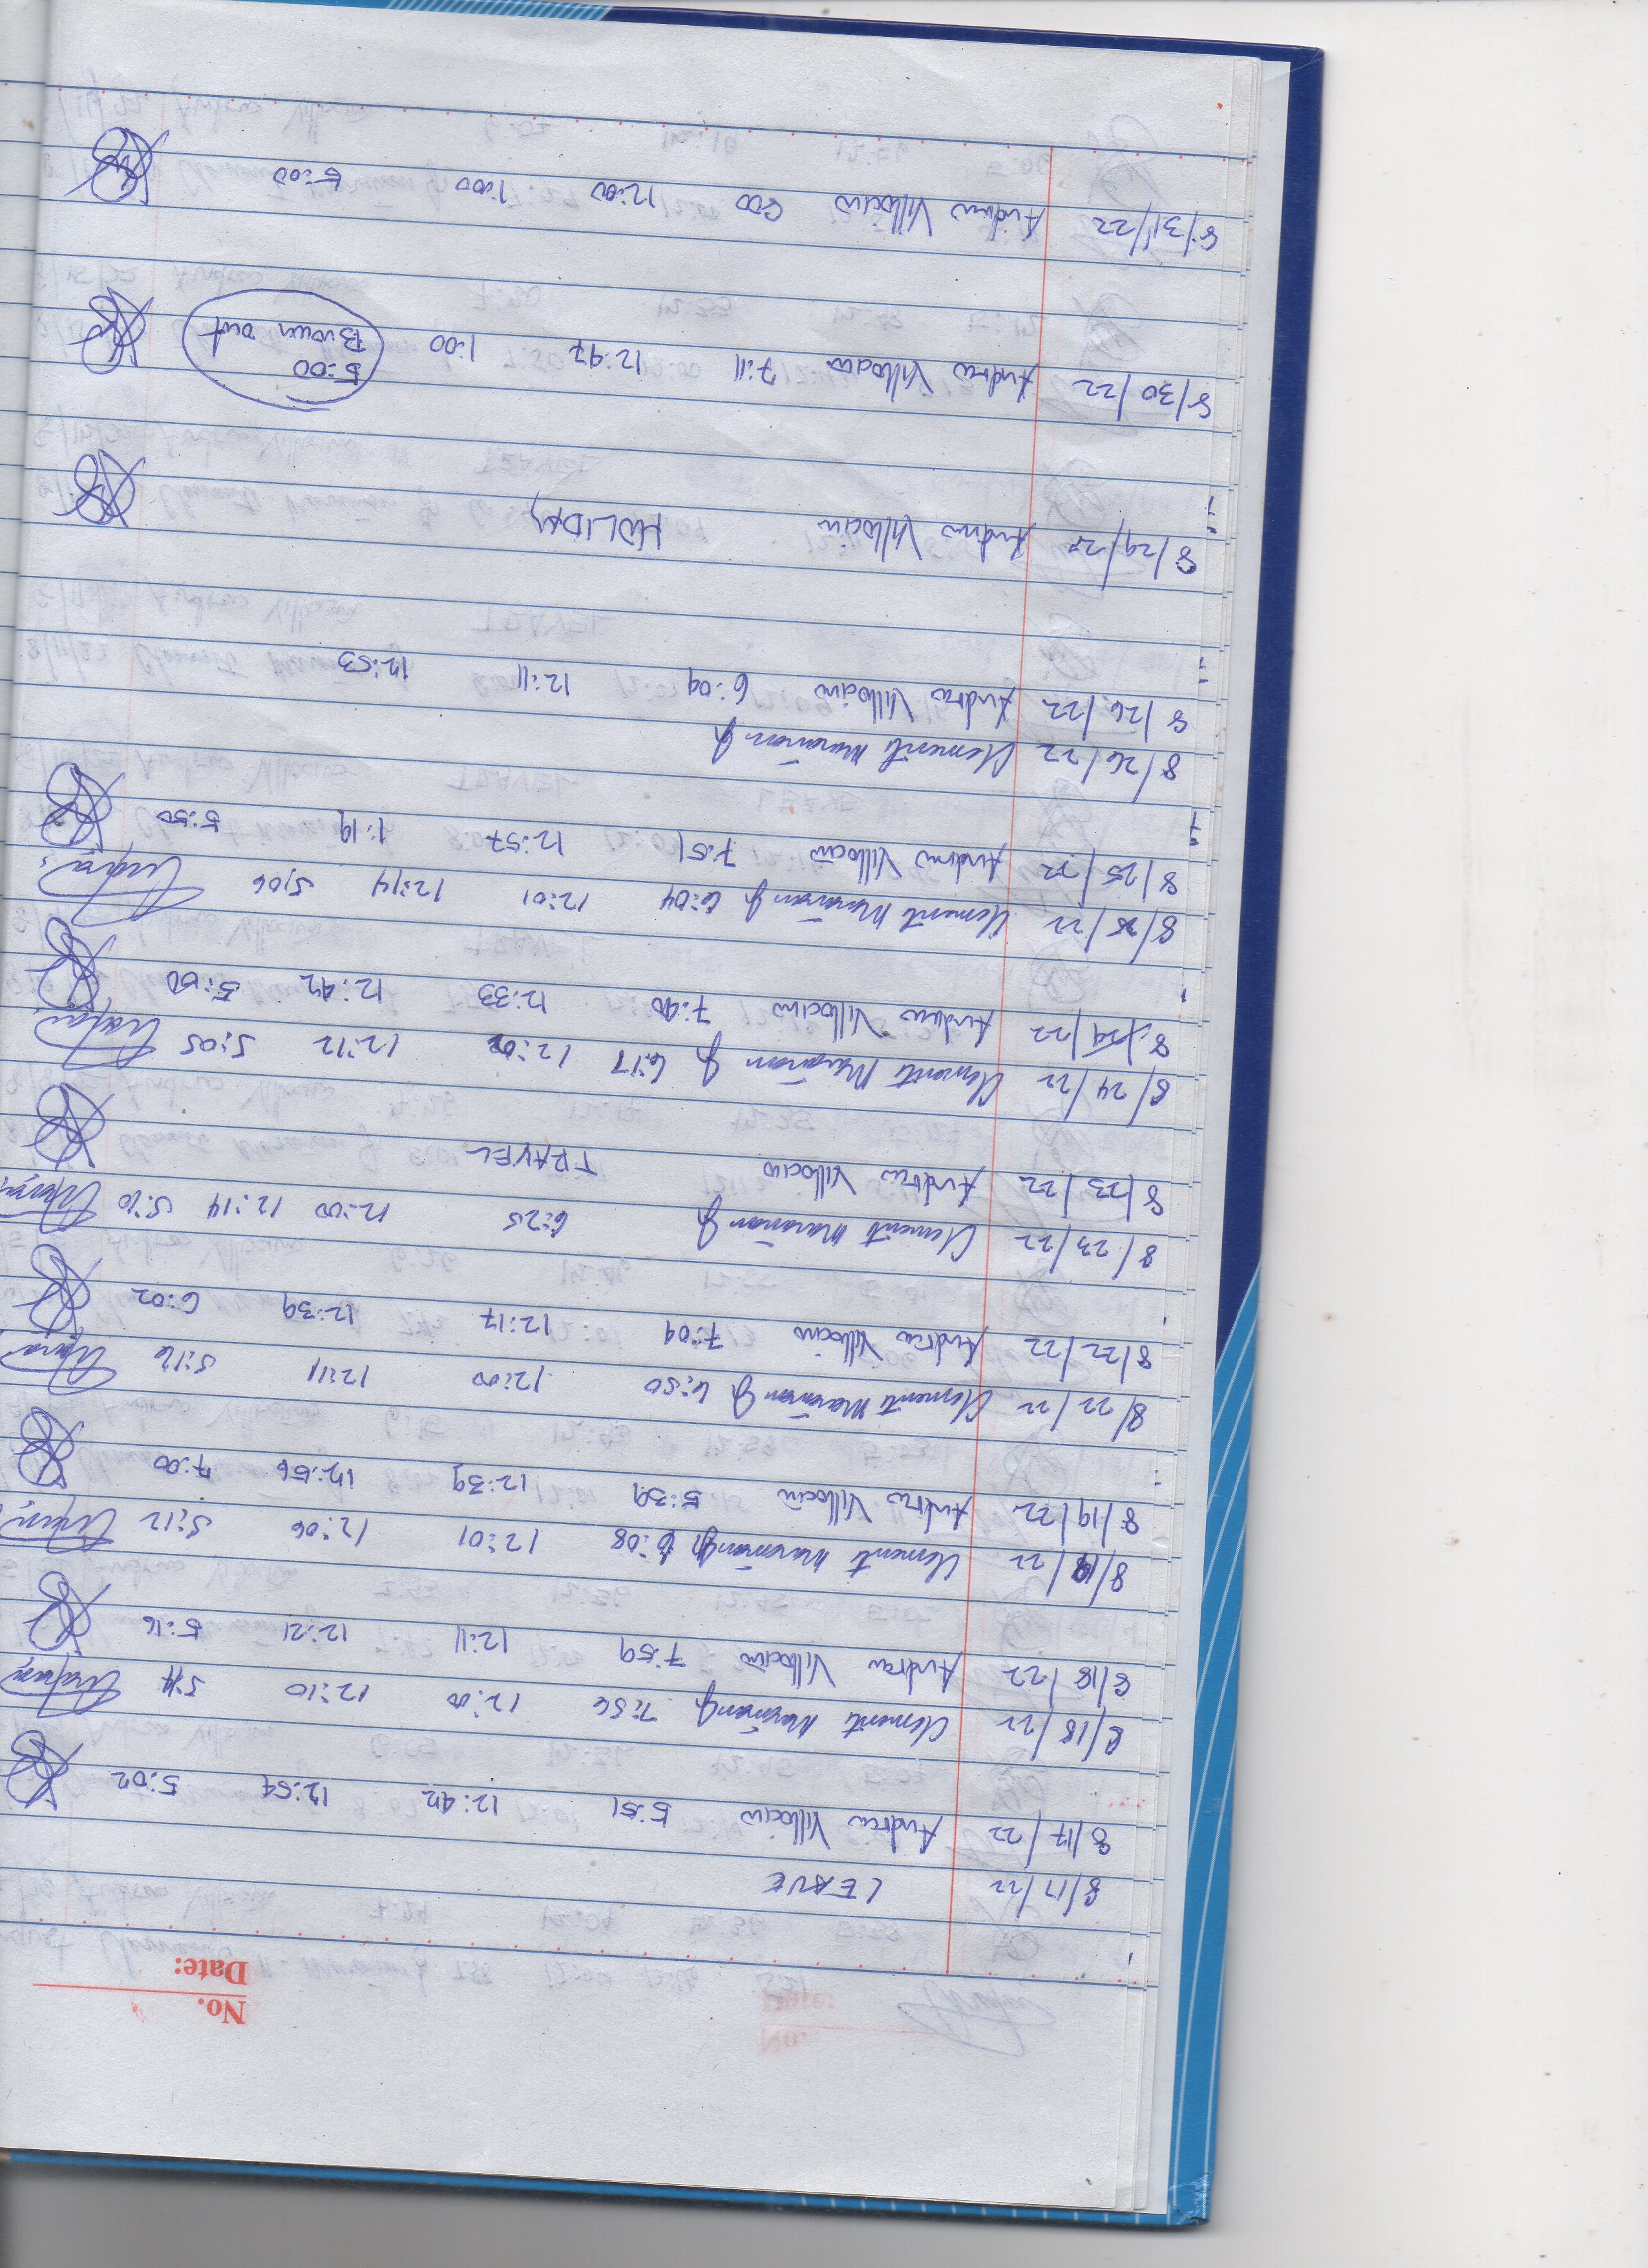 No.
Date:
8/17/22 LEAVE
8/17/22 Andrew Villocino 5:51 12:42 12:54 5:02
8/18/22 Clemente Maranan Jr. 7:56 12:00 12:10 5:14
8/18/22 Andrew Villocino 7:59 12:11 12:21 5:16
8/19/22 Clemente Maranan Jr. 6:08 12:01 12:06 5:12
8/19/22 Andrew Villocino 5:39 12:39 12:56 7:00
8/22/22 Clemente Maranan Jr. 6:50 12:00 12:11 5:16
8/22/22 Andrew Villocino 7:09 12:17 12:39 6:02
8/23/22 Clemente Maranan Jr. 6:25 12:00 12:14 5:10
8/23/22 Andrew Villocino TRAVEL
8/24/22 Clemente Maranan Jr. 6:17 12:02 12:12 5:05
8/24/22 Andrew Villocino 7:40 12:33 12:42 5:00
8/25/22 Clemente Maranan Jr. 6:04 12:01 12:14 5:06
8/25/22 Andrew Villocino 7:51 12:57 1:19 5:50
8/26/22 Clemente Maranan Jr.
8/26/22 Andrew Villocino 6:09 12:11 12:53
8/29/22 Andrew Villocino HOLIDAY
8/30/22 Andrew Villocino 7:11 12:47 1:00 5:00
Brown out
8/31/22 Andrew Villocino 12:00 1:00 5:00